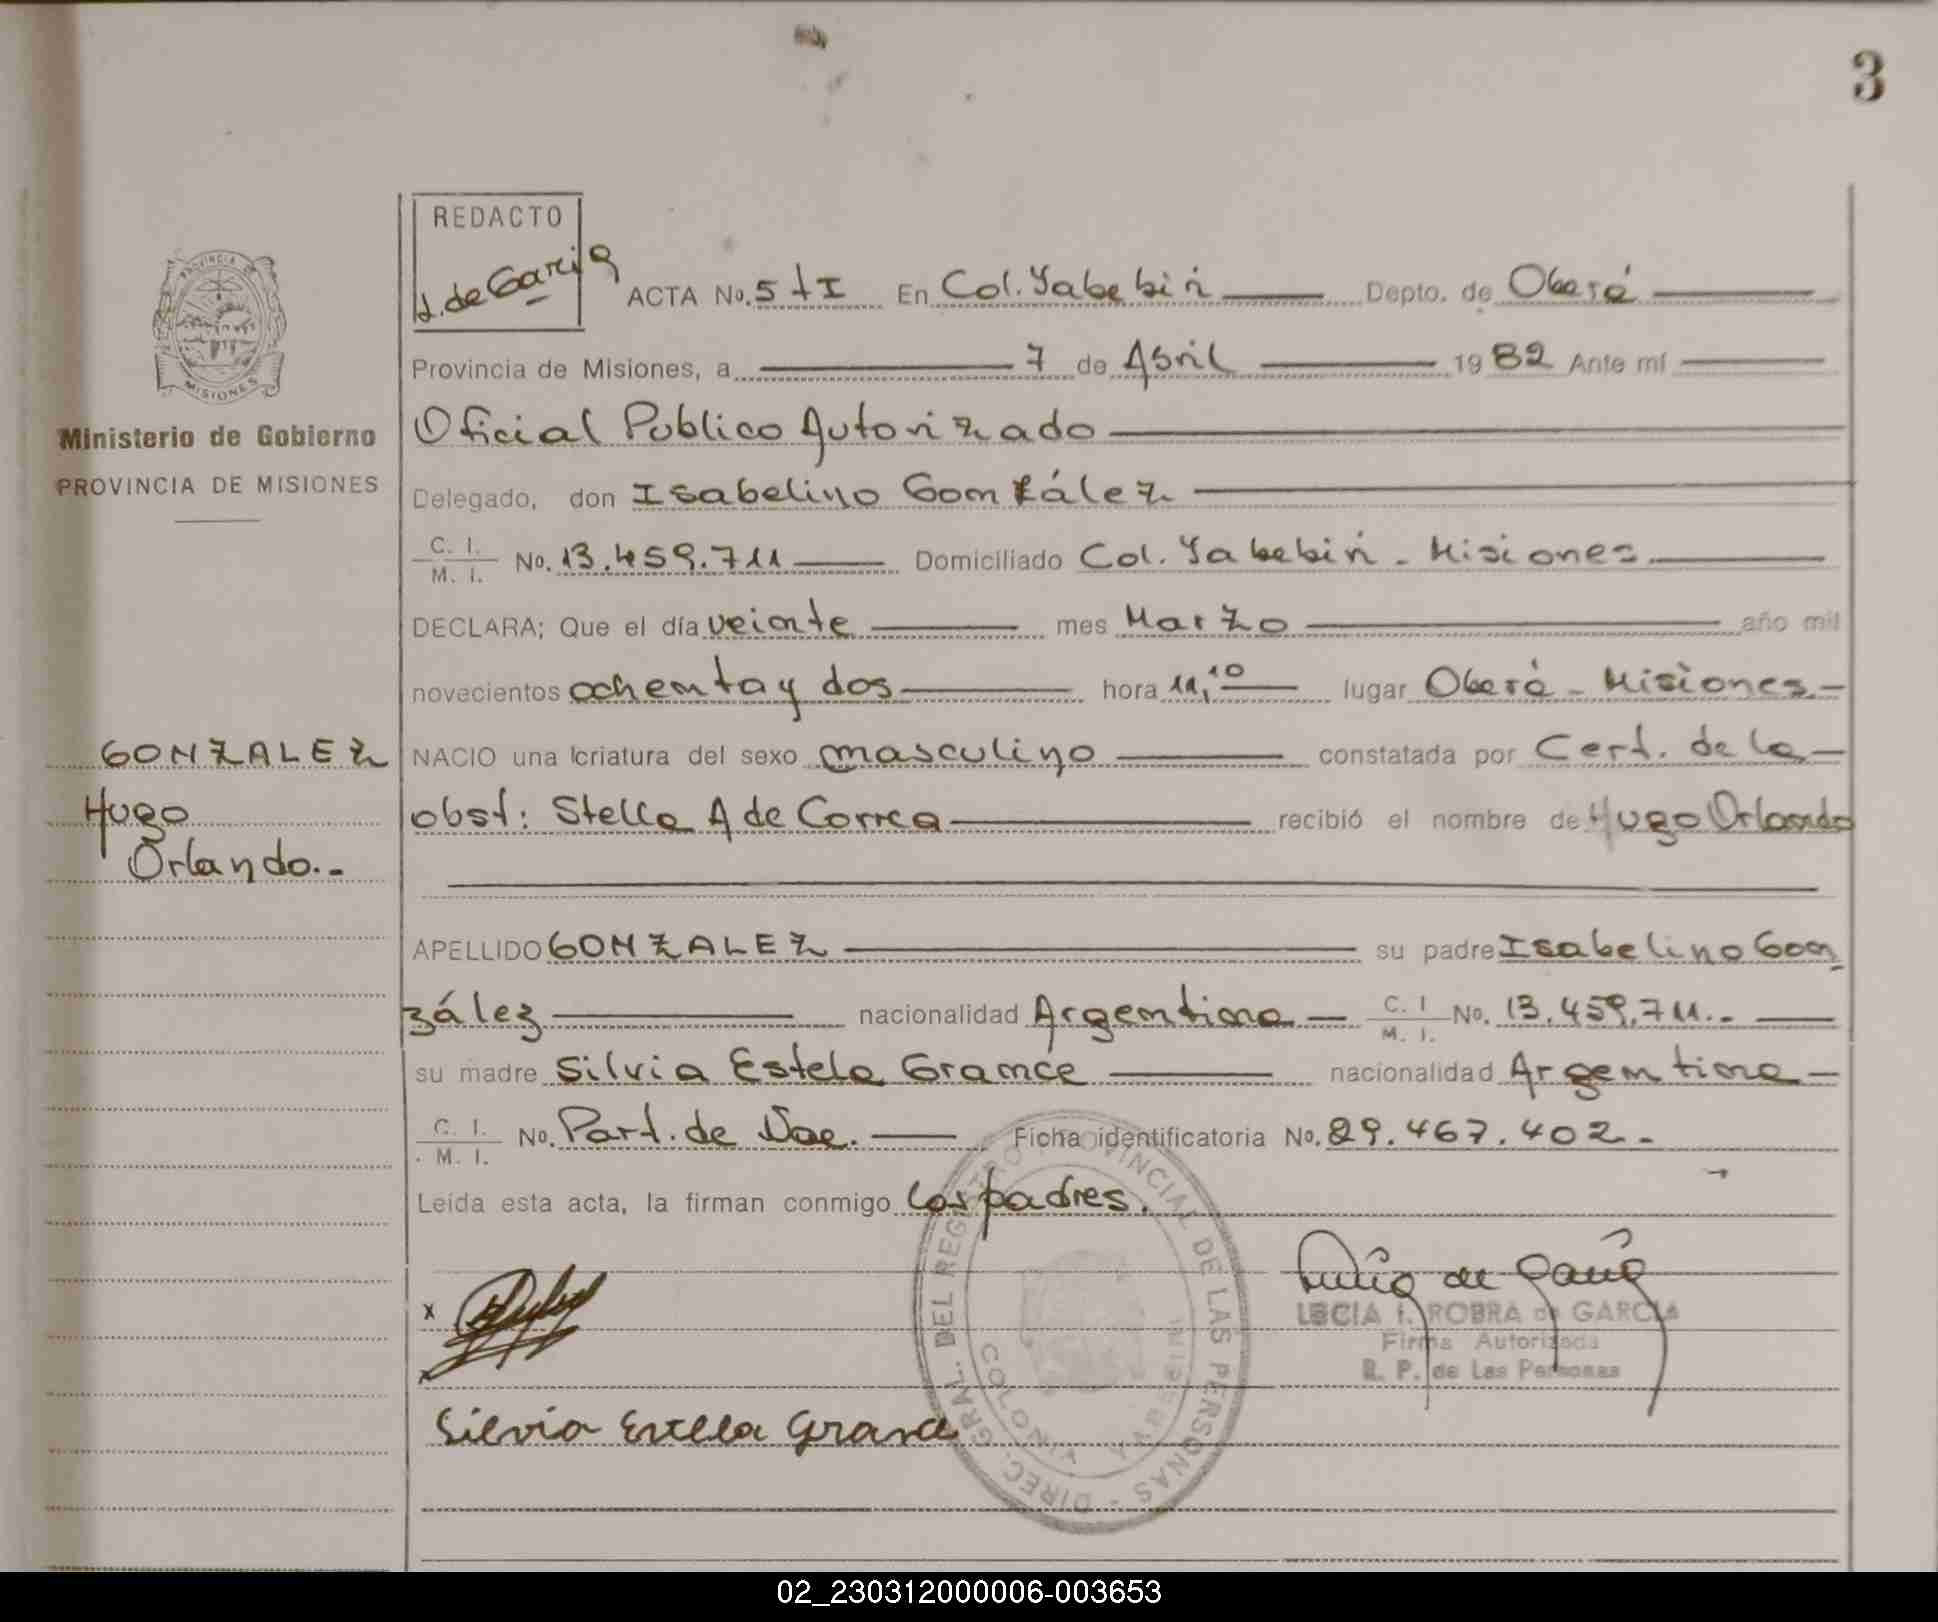 3
REDACTO
L. de Garcia
ACTA No. 5 tI En Col. Yabebiri Depto. de Oberá
Provincia de Misiones, a 7 de Abril 1982 Ante mí
Oficial Publico Autorizado
Delegado, don Isabelino González
C. I. / M. I. No. 13.459.711 Domiciliado Col. Yabebiri - Misiones
DECLARA; Que el día veinte mes Marzo año mil
novecientos ochenta y dos hora 11,10 lugar Oberá - Misiones -
NACIO una criatura del sexo masculino constatada por Cert. de la
obst: Stella A de Correa recibió el nombre de Hugo Orlando
APELLIDO GONZALEZ su padre Isabelino Gon
zález nacionalidad Argentina - C. I. / M. I. No. 13.459.711.-
su madre Silvia Estela Grance nacionalidad Argentina -
C. I. / M. I. No. Part. de Nac. Ficha identificatoria No. 29.467.402.-
Leída esta acta, la firman conmigo los padres.
PROVINCIA DE
MISIONES
Ministerio de Gobierno
PROVINCIA DE MISIONES
GONZALEZ
Hugo
Orlando.-
x
x
Silvia Estella Grance
DIREC. GRAL. DEL REGISTRO PROVINCIAL DE LAS PERSONAS
COLONIA YABEBIRI
LUCIA I. ROBRA de GARCIA
Firma Autorizada
R. P. de Las Personas
02_230312000006-003653